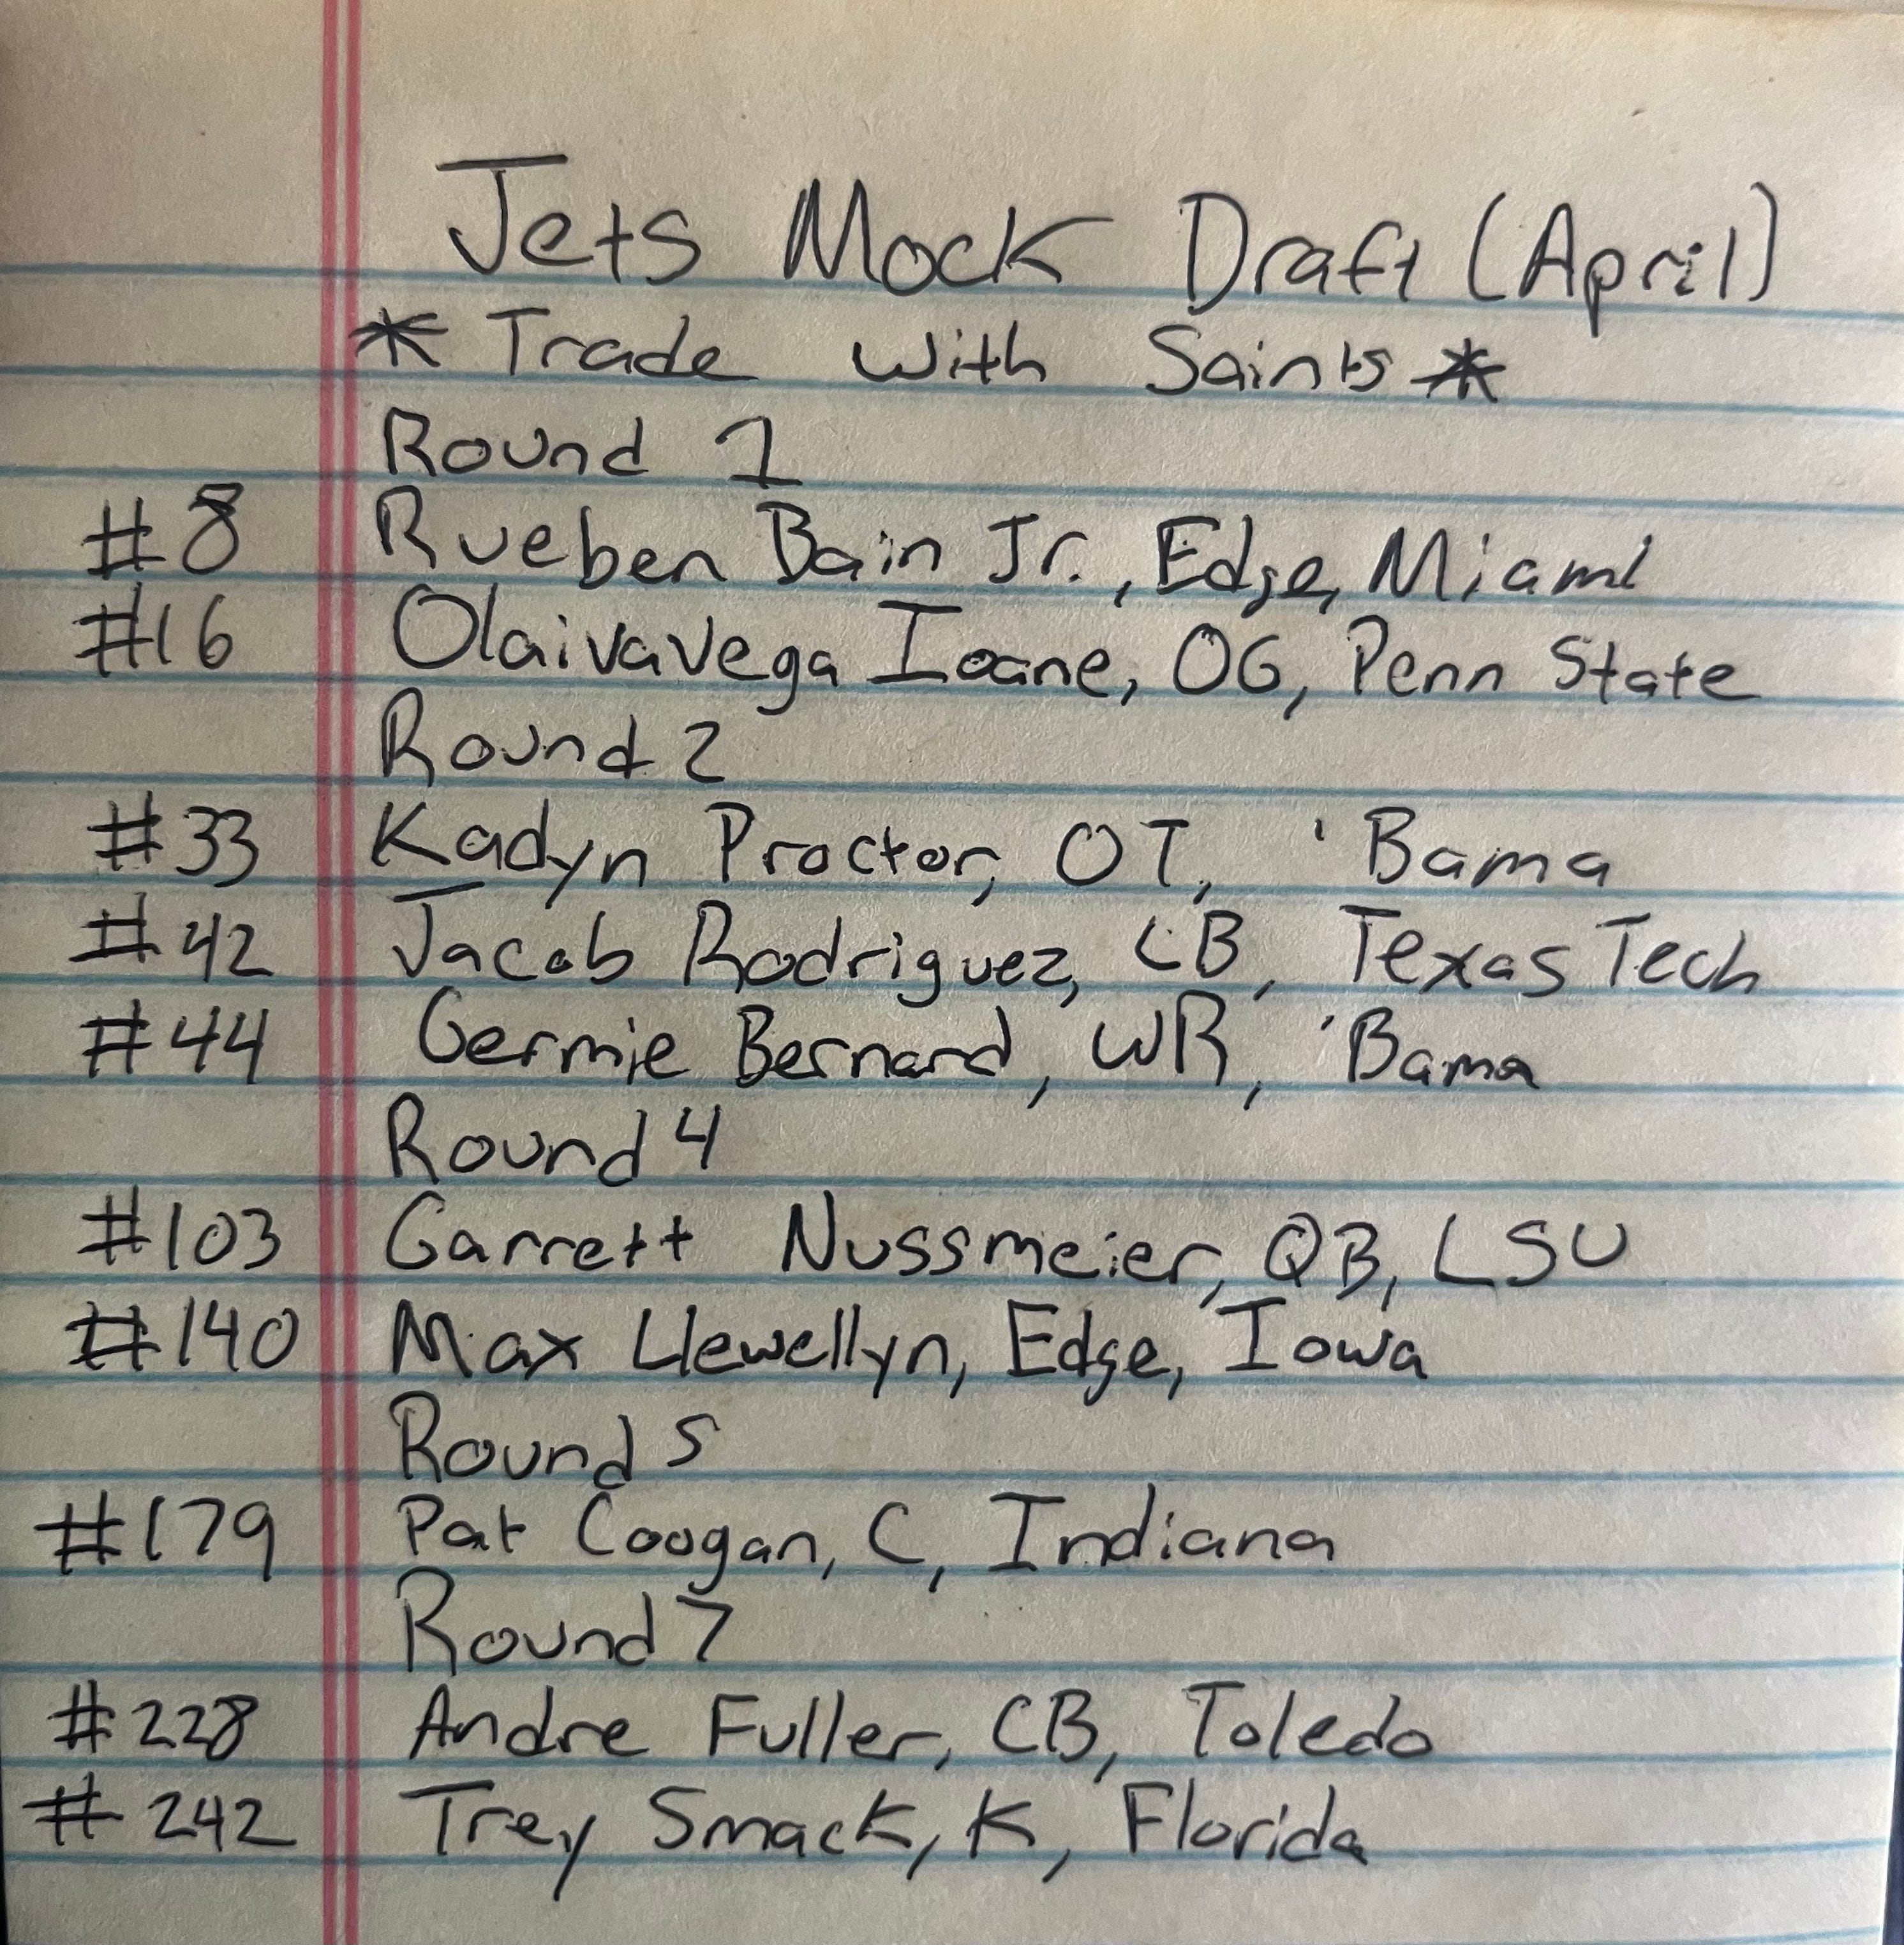 Jets Mock Draft (April)
* Trade with Saints *
Round 1
#8 Rueben Bain Jr., Edge, Miami
#16 Olaivavega Ioane, OG, Penn State
Round 2
#33 Kadyn Proctor, OT, 'Bama
#42 Jacob Rodriguez, LB, Texas Tech
#44 Germie Bernard, WR, 'Bama
Round 4
#103 Garrett Nussmeier, QB, LSU
#140 Max Llewellyn, Edge, Iowa
Round 5
#179 Pat Coogan, C, Indiana
Round 7
#228 Andre Fuller, CB, Toledo
#242 Trey Smack, K, Florida